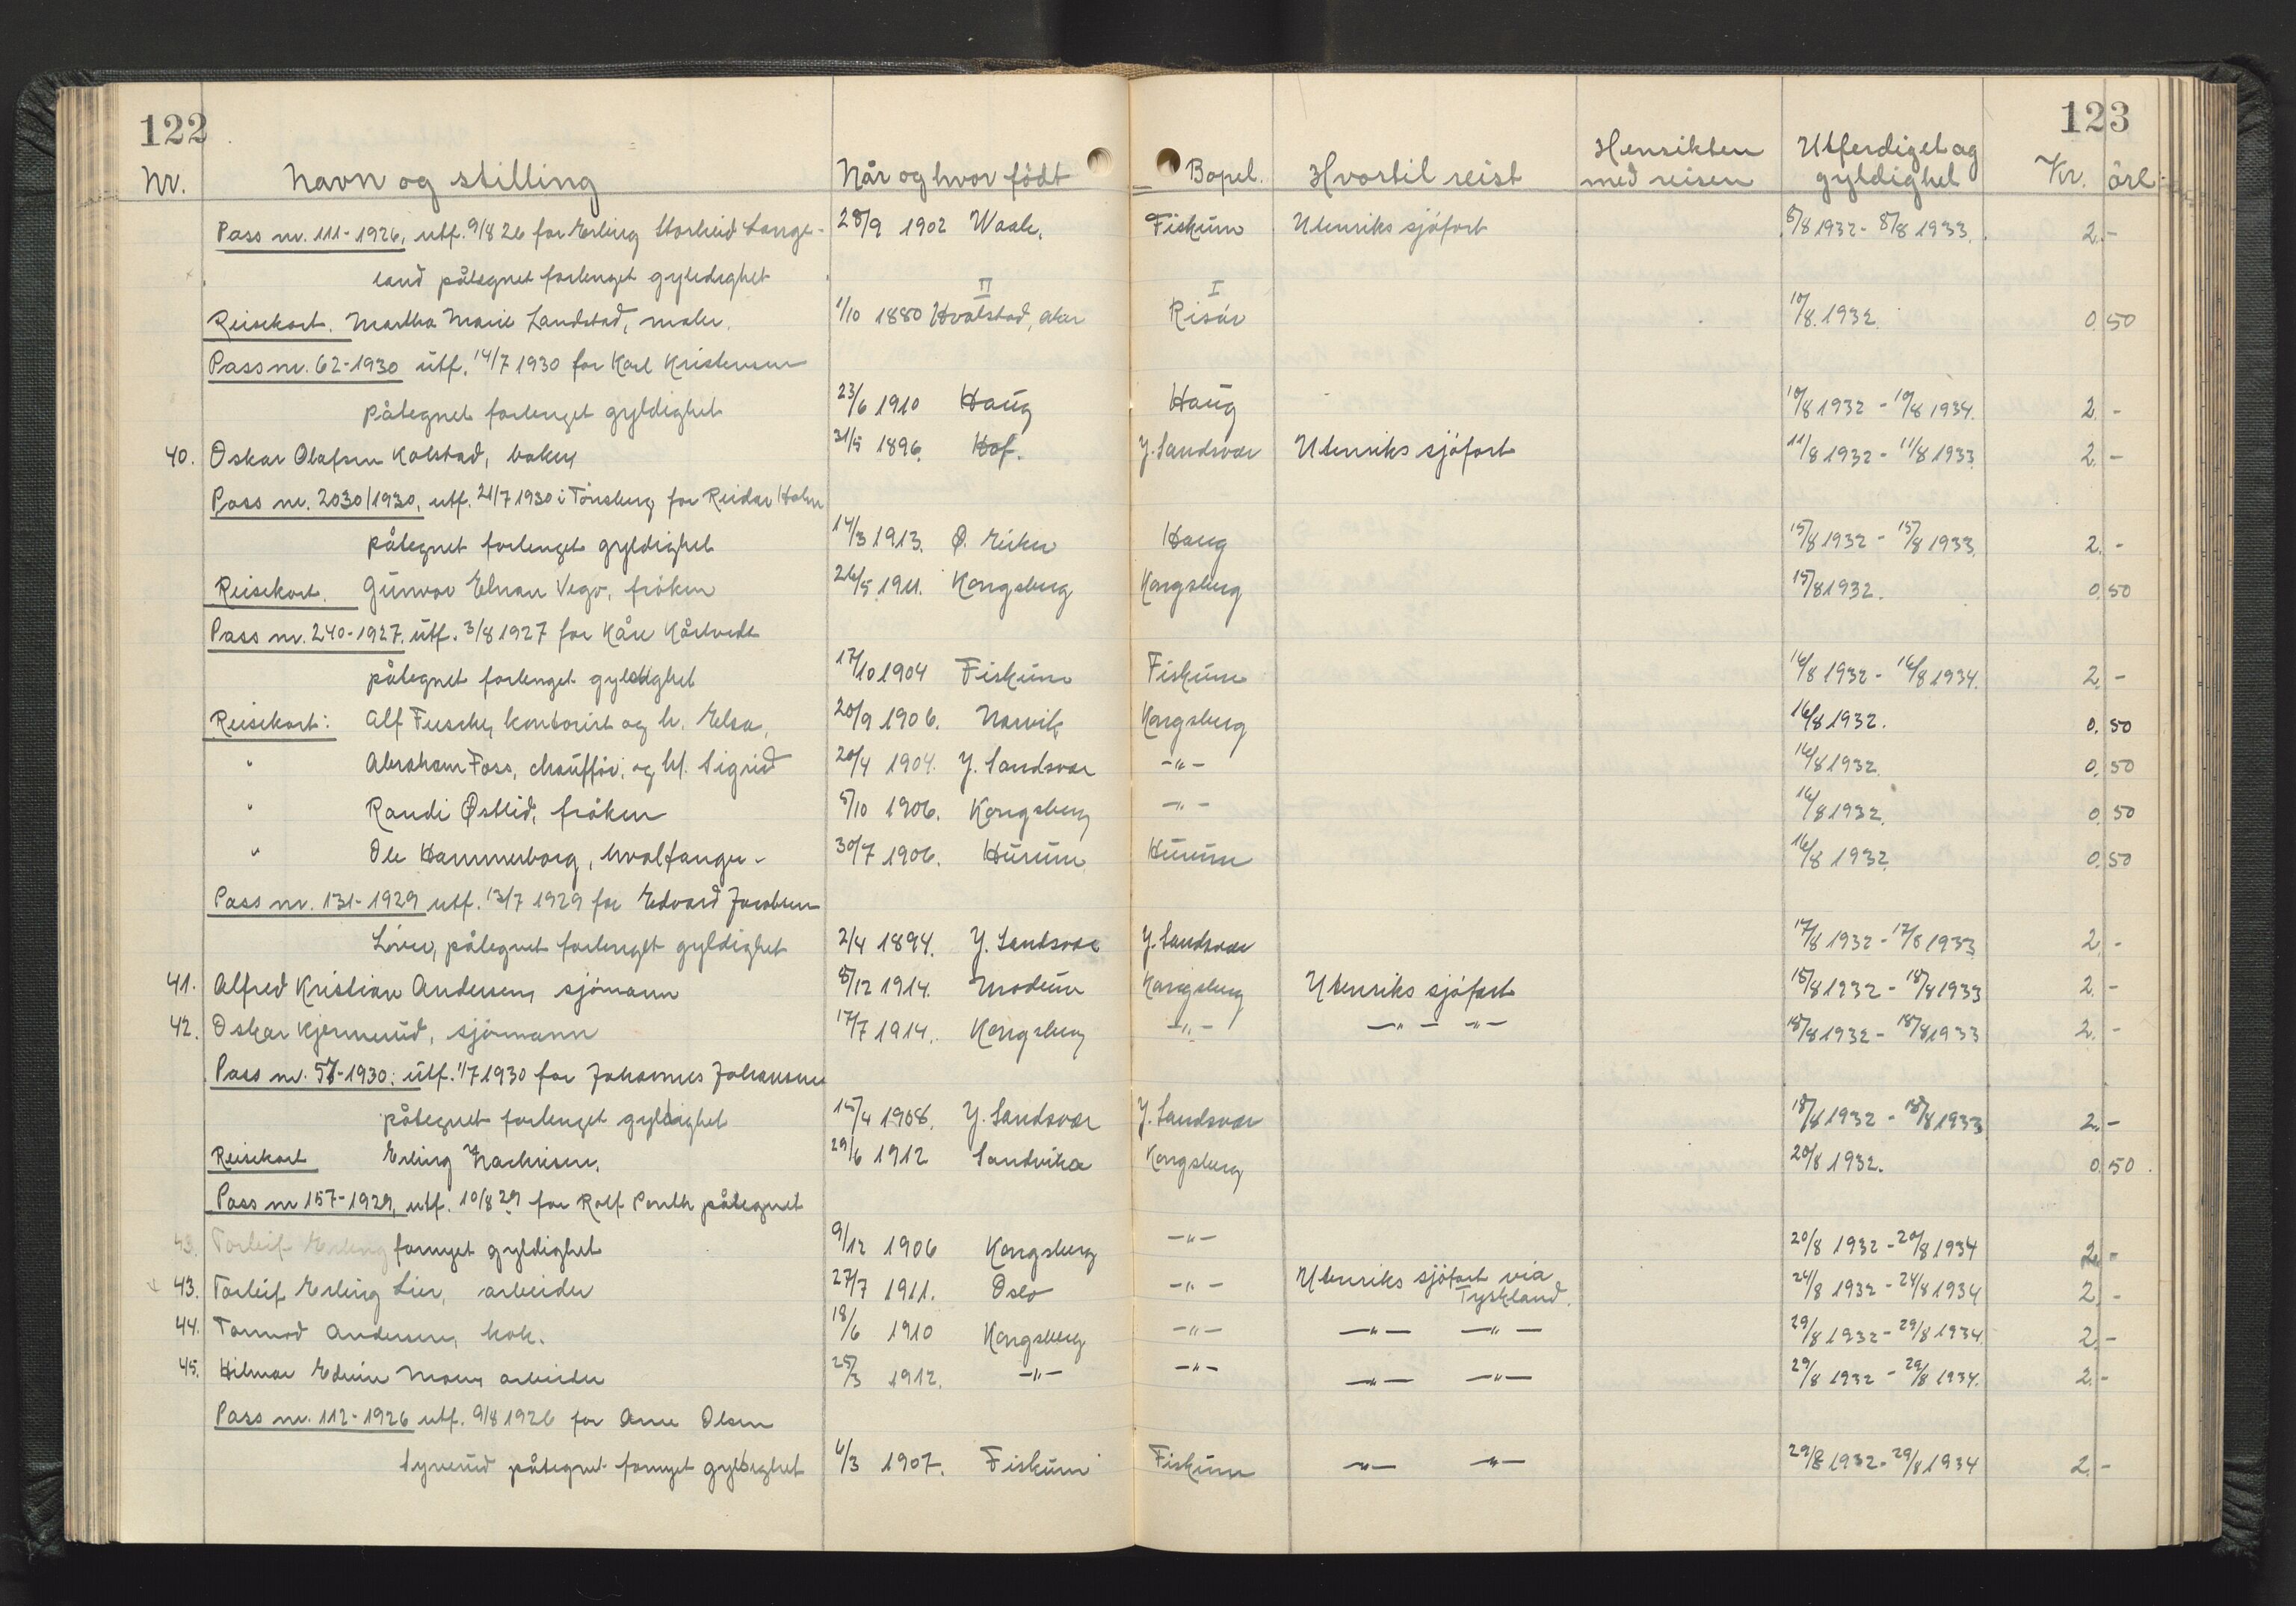 122
123
Nr. Navn og stilling Når og hvor födt Bopel. Hvortil reist Hensikten med reisen Utferdiget og gyldighet Kr. öre
Pass nr. 111-1926, utf. 9/8 26 for Erling Storheid Lange- 28/9 1902 Waale. Fiskum Utenriks sjöfart 8/8 1932 - 8/8 1933. 2. -
land påtegnet forlenget gyldighet
II I
Reisekort. Martha Marie Landstad, maler. 1/10 1880 Hvalstad, Aker Risör 10/8. 1932. 0. 50
Pass nr. 62-1930 utf. 14/7 1930 for Karl Kristensen
påtegnet forlenget gyldighet 23/6 1910 Haug Haug 10/8 1932 - 10/8 1934. 2. -
40. Oskar Olafsen Kolstad, baker 31/5 1896. Hof. Y. Sandsvær Utenriks sjöfart 11/8 1932 - 11/8 1933. 2. -
Pass nr. 2030/1930, utf. 21/7 1930 i Tönsberg for Reidar Holm
påtegnet forlenget gyldighet 14/3 1913. Ö. Eiker Haug 15/8 1932 - 15/8 1933. 2. -
Reisekort. Gunvor Elnan Vego, fröken 26/5 1911. Kongsberg Kongsberg 15/8 1932. 0. 50
Pass nr. 240-1927. utf. 3/8 1927 for Kåre Kårtvedt
påtegnet forlenget gyldighet 17/10 1904 Fiskum Fiskum 16/8 1932 - 16/8 1934. 2. -
Reisekort: Alf Fusche, kontorist og h. Elsa, 20/9 1906. Narvik Kongsberg 16/8 1932. 0. 50
" Abraham Foss, chaufför, og hf. Sigrid 20/4 1904. Y. Sandsvær -"- 16/8 1932. 0. 50
" Randi Østlid, fröken 5/10 1906. Kongsberg -"- 16/8 1932. 0. 50
" Ole Hammerborg, hvalfanger - 30/7 1906. Hurum Hurum 16/8 1932. 0. 50
Pass nr. 131-1929 utf. 13/7 1929 for Edvard Jacobsen
Löver, påtegnet forlenget gyldighet 2/4 1894. Y. Sandsvær Y. Sandsvær 17/8 1932 - 17/8 1933 2. -
41. Alfred Kristian Andersen, sjömann 8/12 1914. Modum Kongsberg Utenriks sjöfart 18/8 1932 - 18/8 1933 2. -
42. Oskar Kjernerud, sjömann 17/7 1914. Kongsberg -"- -"- -"- 18/8 1932 - 18/8 1933 2. -
Pass nr. 57-1930: utf. 1/7 1930 for Johannes Johansen
påtegnet forlenget gyldighet 15/4 1908. Y. Sandsvær Y. Sandsvær 18/8 1932 - 18/8 1933 2. -
Reisekort Erling Zachrisen. 29/6 1912 Sandvika Kongsberg 20/8 1932. 0. 50.
Pass nr 157-1929, utf. 10/8 29 for Rolf påtegnet
43. Torleif Erling fornyet gyldighet 9/12 1906 Kongsberg -"- 20/8 1932 - 20/8 1934 2. -
43. Torleif Erling Lier, arbeider 27/7 1911. Oslo -"- Utenriks sjöfart via Tyskland. 24/8 1932 - 24/8 1934 2. -
44. Tormod Andersen, kok. 18/6 1910 Kongsberg -"- -"- -"- 29/8 1932 - 29/8 1934. 2. -
45. Hilmar Edvin Moen, arbeider 25/3 1912. -"- -"- -"- -"- 29/8 1932 - 29/8 1934. 2. -
Pass nr. 112-1926 utf. 9/8 1926 for Arne Olsen
Lyverud påtegnet fornyet gyldighet 6/3 1907. Fiskum Fiskum -"- -"- 29/8 1932 - 29/8 1934 2. -